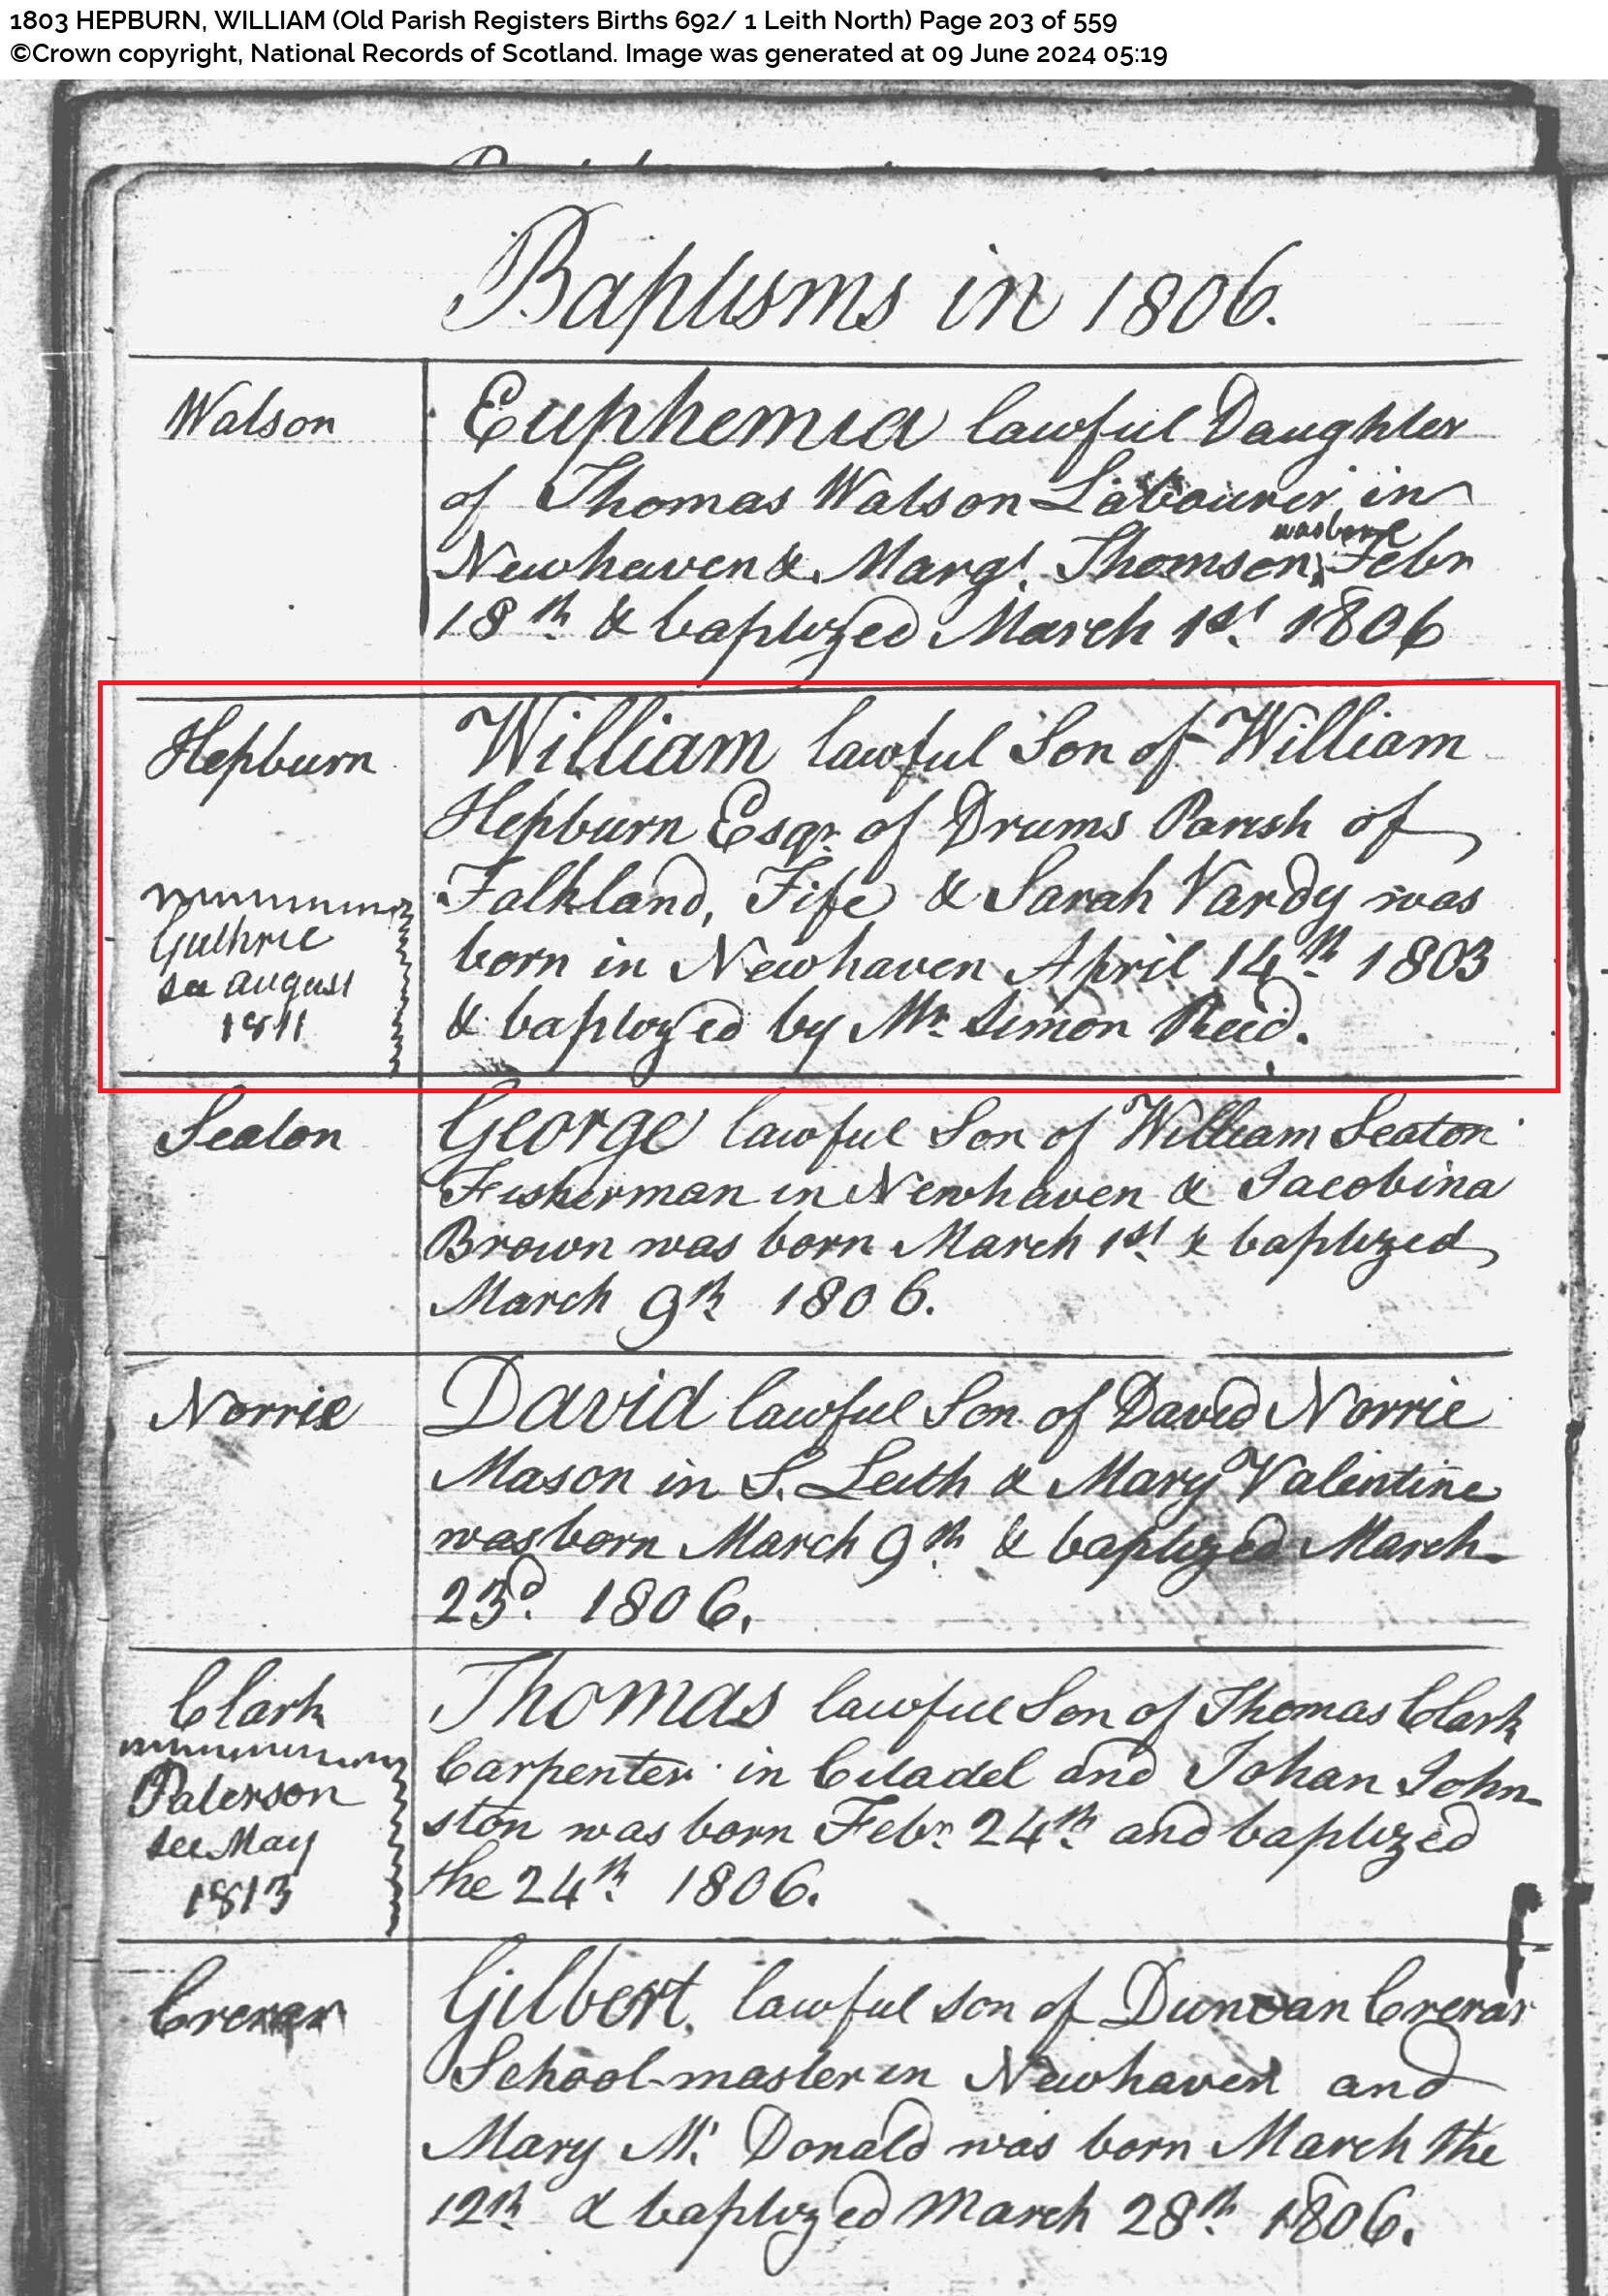 1803 HEPBURN, WILLIAM (Old Parish Registers Births 692/ 1 Leith North) Page 203 of 559
©Crown copyright, National Records of Scotland. Image was generated at 09 June 2024 05:19
Baptisms in 1806.
Watson
Euphemia lawful Daughter
of Thomas Watson Labourer in
was born
Newhaven & Margt. Thomson, Febr
18th & baptized March 1st 1806
Hepburn
William lawful Son of William
Hepburn Esqr. of Drums Parish of
Falkland, Fife & Sarah Vardy was
born in Newhaven April 14th 1803
& baptized by Mr Simon Reid.
Guthrie
see august
1811
Seaton
George lawful Son of William Seaton
Fisherman in Newhaven & Jacobina
Brown was born March 1st & baptized
March 9th 1806.
Norrie
David lawful Son of David Norrie
Mason in S. Leith & Mary Valentine
was born March 9th & baptized March
23d. 1806.
Clark
Thomas lawful Son of Thomas Clark
Carpenter in Citadel and Johan John-
ston was born Febr. 24th and baptized
the 24th 1806.
Paterson
see May
1813
Crerar
Gilbert, lawful son of Duncan Crerar
School-master in Newhaven and
Mary Mc Donald was born March the
12th & baptized March 28th 1806.